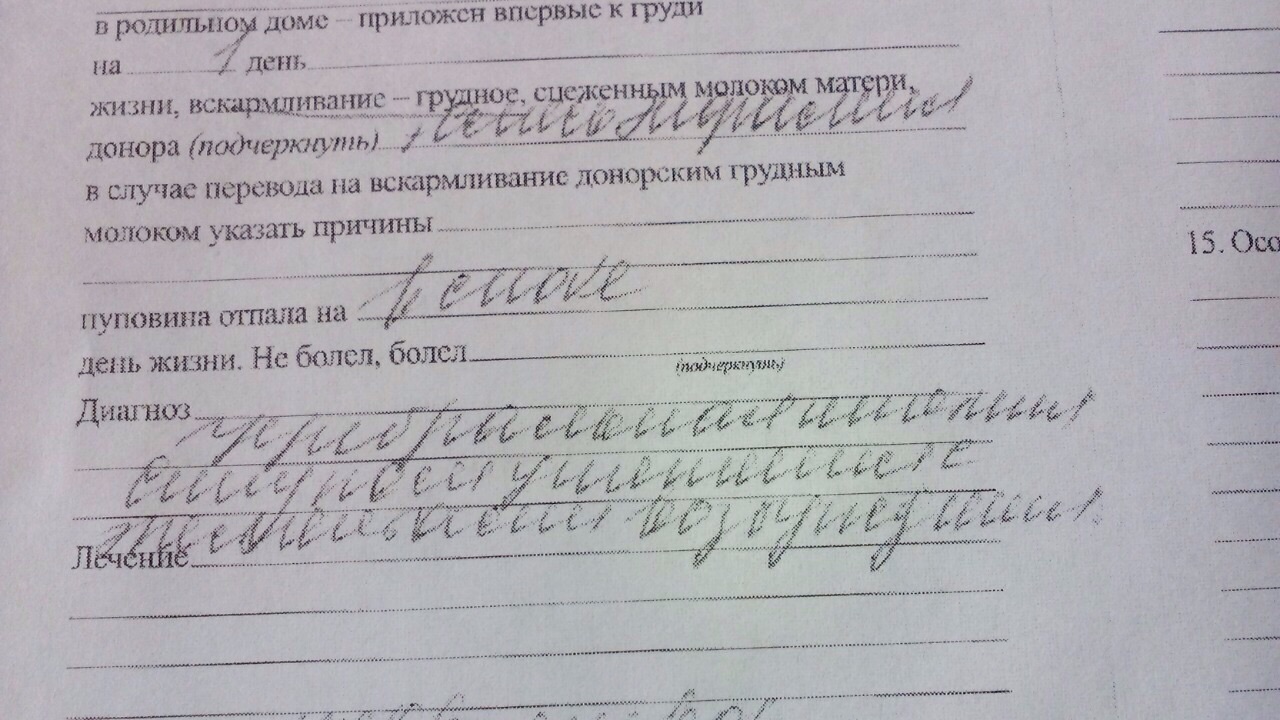 в родильном доме – приложен впервые к груди
на 1 день
жизни, вскармливание – грудное, сцеженным молоком матери,
донора (подчеркнуть)
в случае перевода на вскармливание донорским грудным
молоком указать причины
15. Осо
пуповина отпала на в споке
день жизни. Не болел, болел
(подчеркнуть)
Диагноз церебральная ишемия
синдром угнетения
возбуждения
Лечение